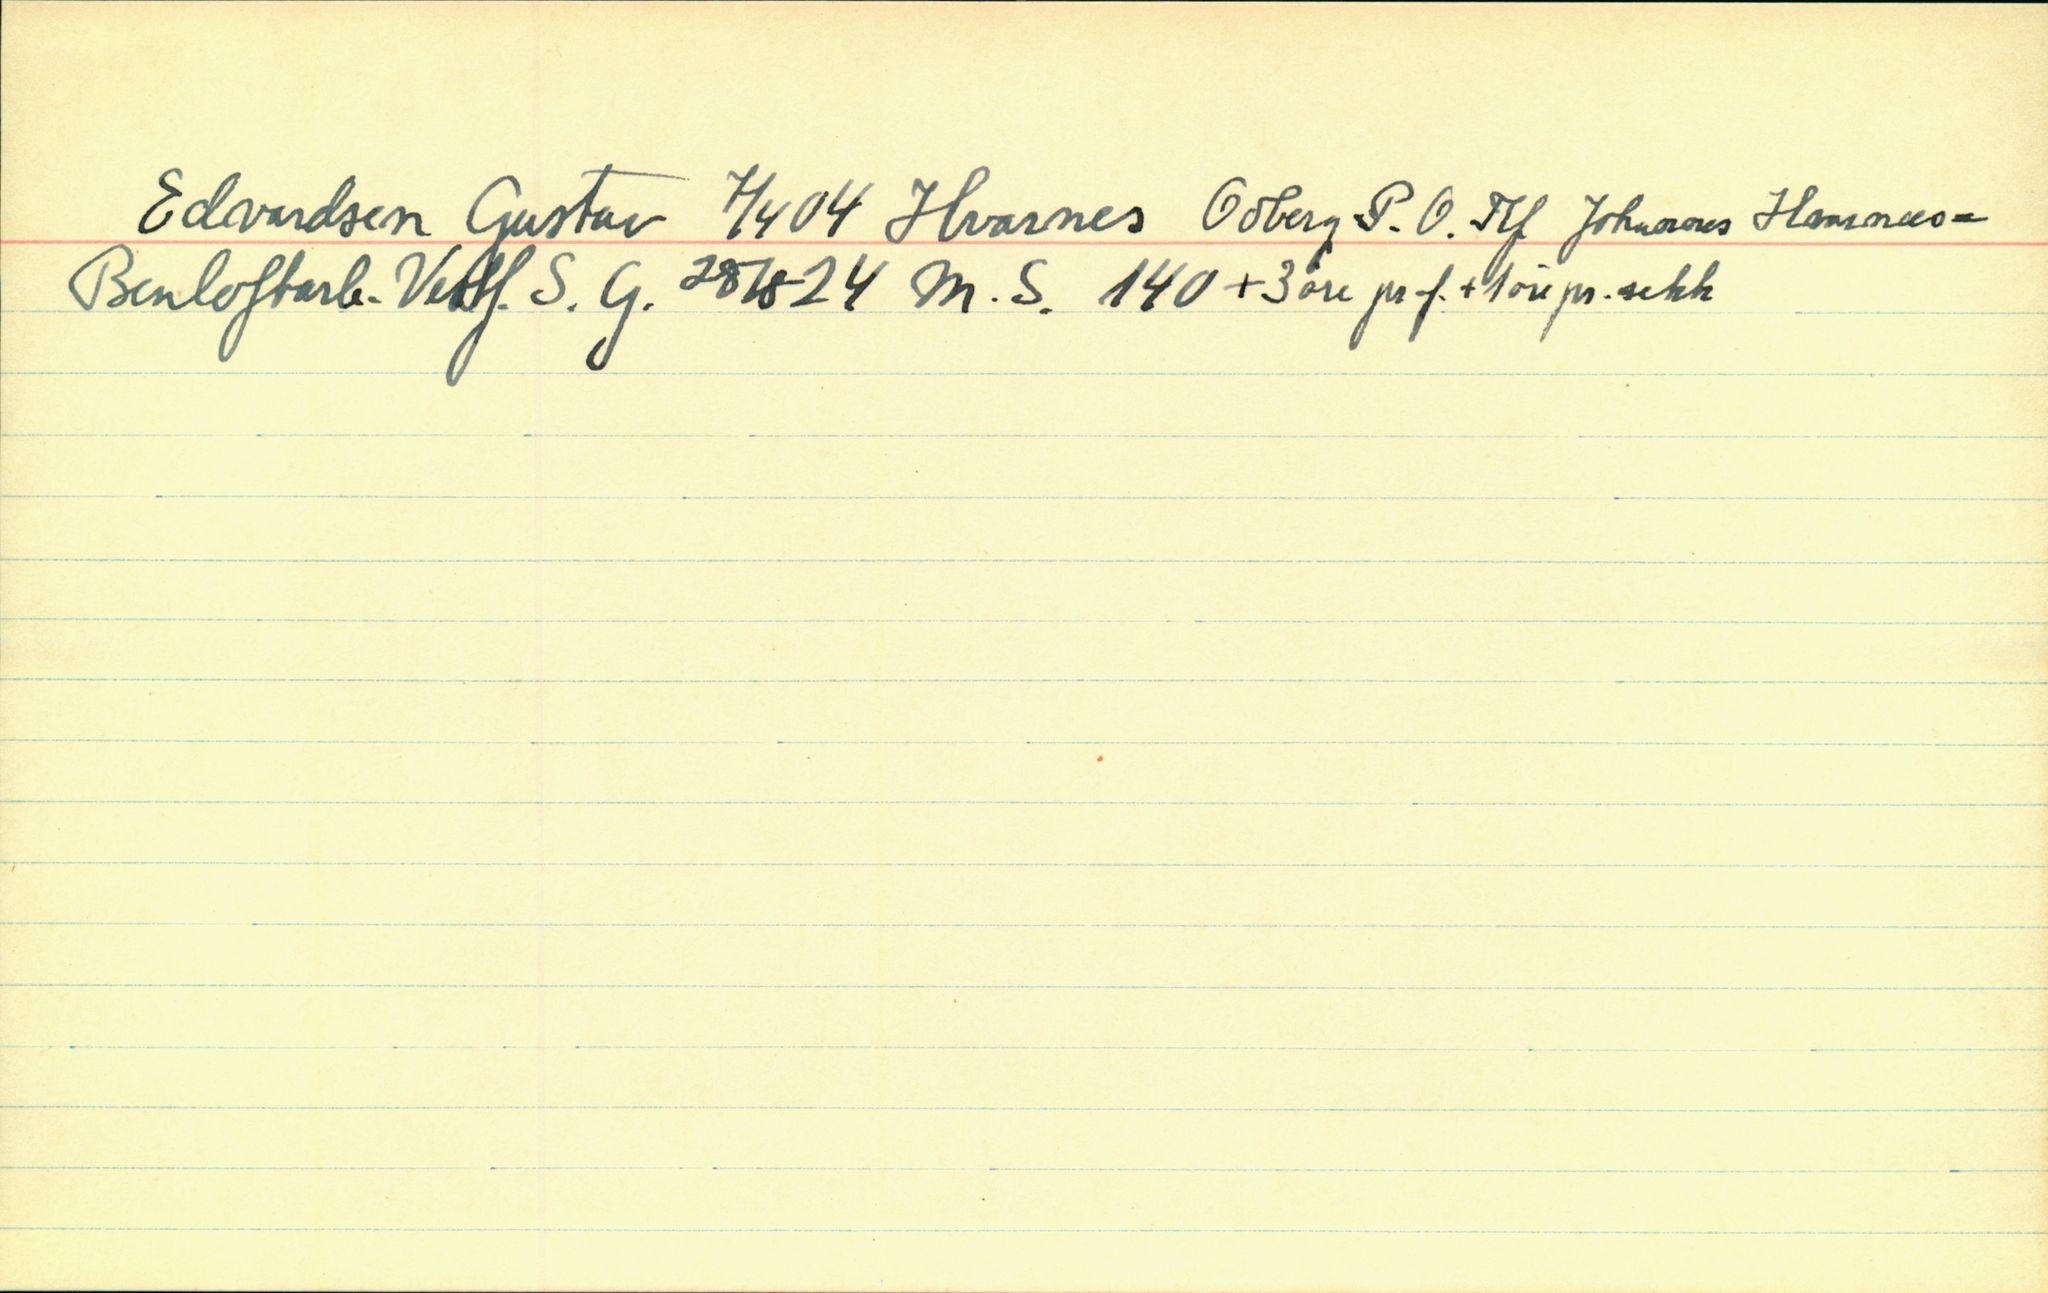 Edvardsen Gustav 7/4 04 Hvarnes Odberg P. O. Tlf Johannes Hvarnes=
Benloftarb. Vestf. S. G. 28/8-24 M. S. 140 + 3 øre pr f. + 1 øre pr. sekk